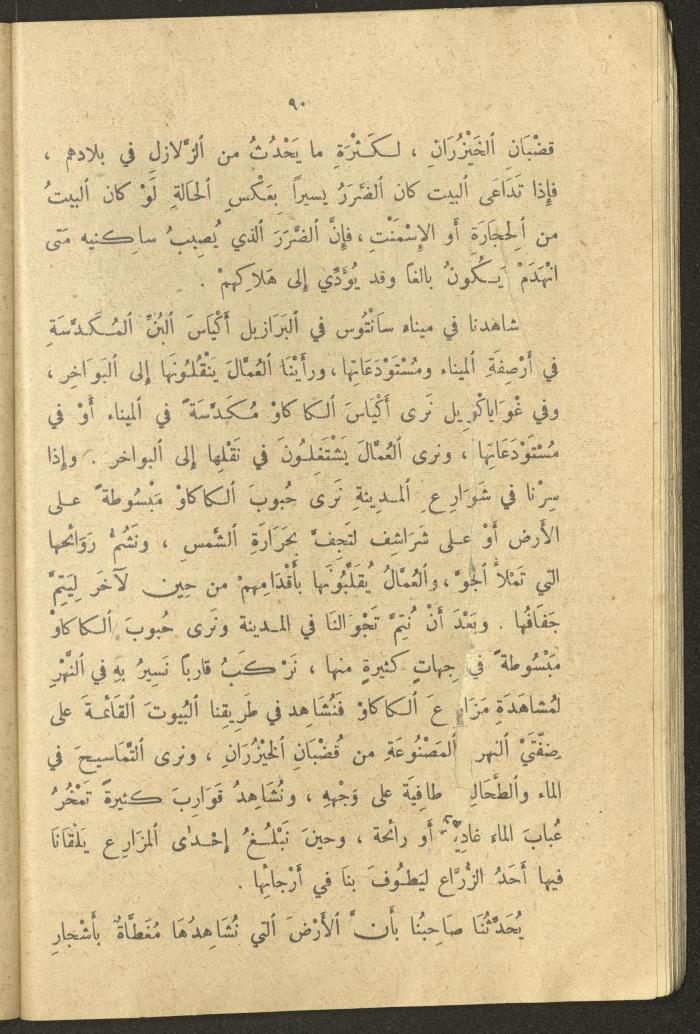 ٩٠
قضْبَانِ ٱلخَيْزُرَانِ ، لـكَـثْرَةِ ما يَحْدُثُ من ٱلزَّلازِلِ في بلادهم ،
فإِذا تَدَاعَى ٱلبيت كان ٱلضَّرَرُ يسيراً بِعَكْسِ ٱلحَالَةِ لَوْ كان ٱلبيتُ
من ٱلحِجَارَةِ أَو الإِسْمَنْتِ ، فإِنَّ ٱلضَّرَرَ ٱلذي يُصِيبُ ساكنيه مَتى
ٱنْهَدَمْ يَـكُونُ بالغاً وقد يُؤَدِّي إِلى هَلاكِهِمْ .
شاهدنا في ميناء سَانْتُوس في ٱلبَرَازيل أَكْيَاسَ ٱلبُنِّ ٱلمُـكَدَّسَةِ
في أَرْصِفَةِ ٱلميناء ومُسْتَوْدَعَاتِها ، ورأَيْنَا ٱلعُمَّالَ يَنْقُلُونَهَا إِلى ٱلبَوَاخِرِ ،
وفي غْوَايَاكْوِيل نَرى أَكْيَاسَ ٱلـكاكاوْ مُـكَدَّسَةً في ٱلميناء أَوْ في
مُسْتَوْدَعَاتِهَا ، ونرى ٱلعُمَّالَ يَشْتَغِلُـونَ في نَقْلِها إِلى ٱلبواخر . وإِذا
سِرْنا في شَوَارِعِ ٱلمـدِينةِ نَرَى حُبوبَ ٱلـكاكاوْ مَبْسُوطةً عـلى
الأَرض أَوْ عـلى شَرَاشِف لتَجِفَّ بِحَرَارَةِ ٱلشَّمسِ ، ونَشُمُّ رَوَائحها
التي تَمْلأُ ٱلجَوَّ ، وٱلعُمَّالُ يُقَلِّبُونَها بأَقْدَامِهِمْ من حِين لآخَر لِيَتِمَّ
جَفَافُها . وبَعْدَ أَنْ نُتِمَّ تَجْوَالنَا في المـدينة ونَرى حُبوبَ ٱلـكاكاوْ
مَبْسُوطةً في جِهاتٍ كَثيرةٍ منها ، نَرْكَبُ قارباً نَسِيرُ بهِ في ٱلنَّهْرِ
لمُشاهَدَةِ مَزَارِعَ ٱلـكاكاوْ فَنُشَاهِد في طَرِيقِنا ٱلبُيوتَ ٱلقَائمـةَ على
ضِفَّتَيْ ٱلنهر ٱلمَصْنُوعَةِ من قُضْبَانِ ٱلخَيْزُرَانِ ، ونرى ٱلتَّمَاسيحَ في
الماء وٱلطَّحَالِ طافِيَة على وَجْهِهِ ، ونُشَاهِدُ قَوَارِبَ كَثيرةً تَمْخُرُ
عُبابَ الماء غادِيَةً أَو رائحة ، وحينَ نَبْلُـغُ إِحْـدٰى ٱلمزَارِع يَلْقَانَا
فيها أَحَدُ ٱلزُّرَّاع ليَطُـوفَ بنا في أَرْجائِها .
يُحَدِّثُنَا صَاحِبُنَا بأَنَّ ٱلأَرْضَ ٱلتي نُشَاهِدُهَا مُغَطَّاةٌ بأَشْجارِ